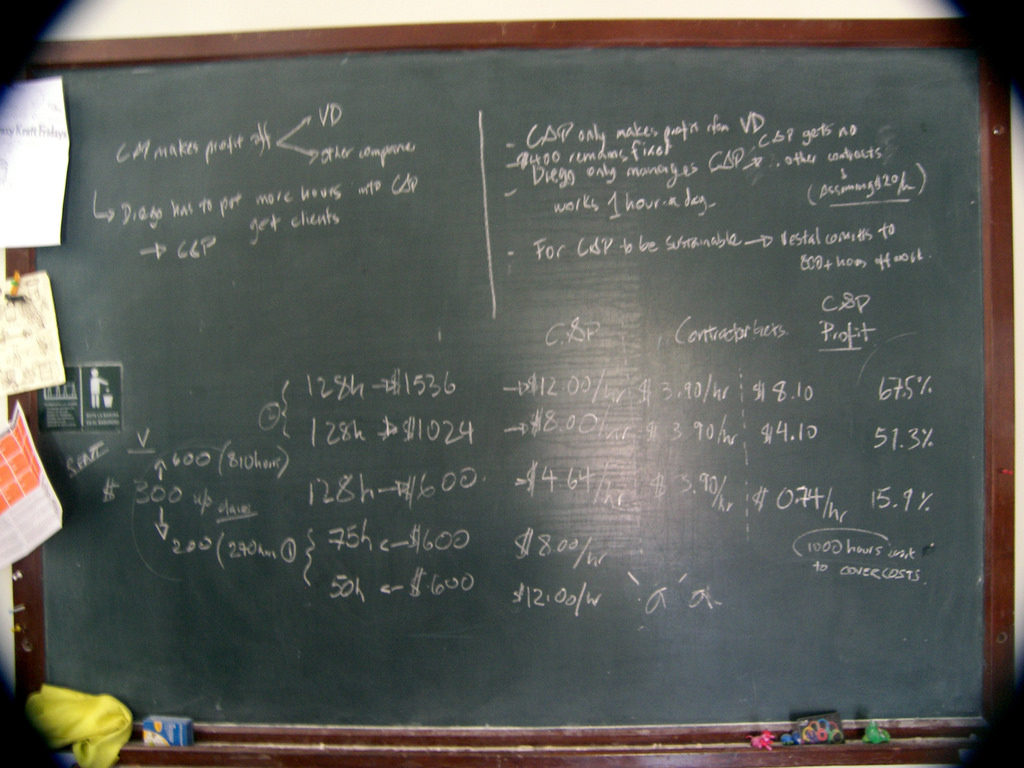 azy Kraft Fridays
C&P makes profit off
VD
other companies
Diego has to put more hours into C&P
get clients
→ C&P
- C&P only makes profit from VD
- $400 remains fixed
C&P gets no
other contracts
- Diego only manages C&P →
works 1 hour a day.
(Assuming $20/h)
- For C&P to be sustainable → Vestal commits to
800+ hours of work.
C&P
Contractor gets
C&P
Profit
② 128h → $1536 → $12.00/hr $3.90/hr $8.10 67.5%
128h → $1024 → $8.00/hr $3.90/hr $4.10 51.3%
V
600 (810 hours)
128h → $600. $4.64/hr $3.90/hr $0.74/hr 15.9%
$ 300 up
200 (270 hrs) ① 75h ← $600 $8.00/hr
50h ← $600 $12.00/hr
1000 hours work
to cover costs.